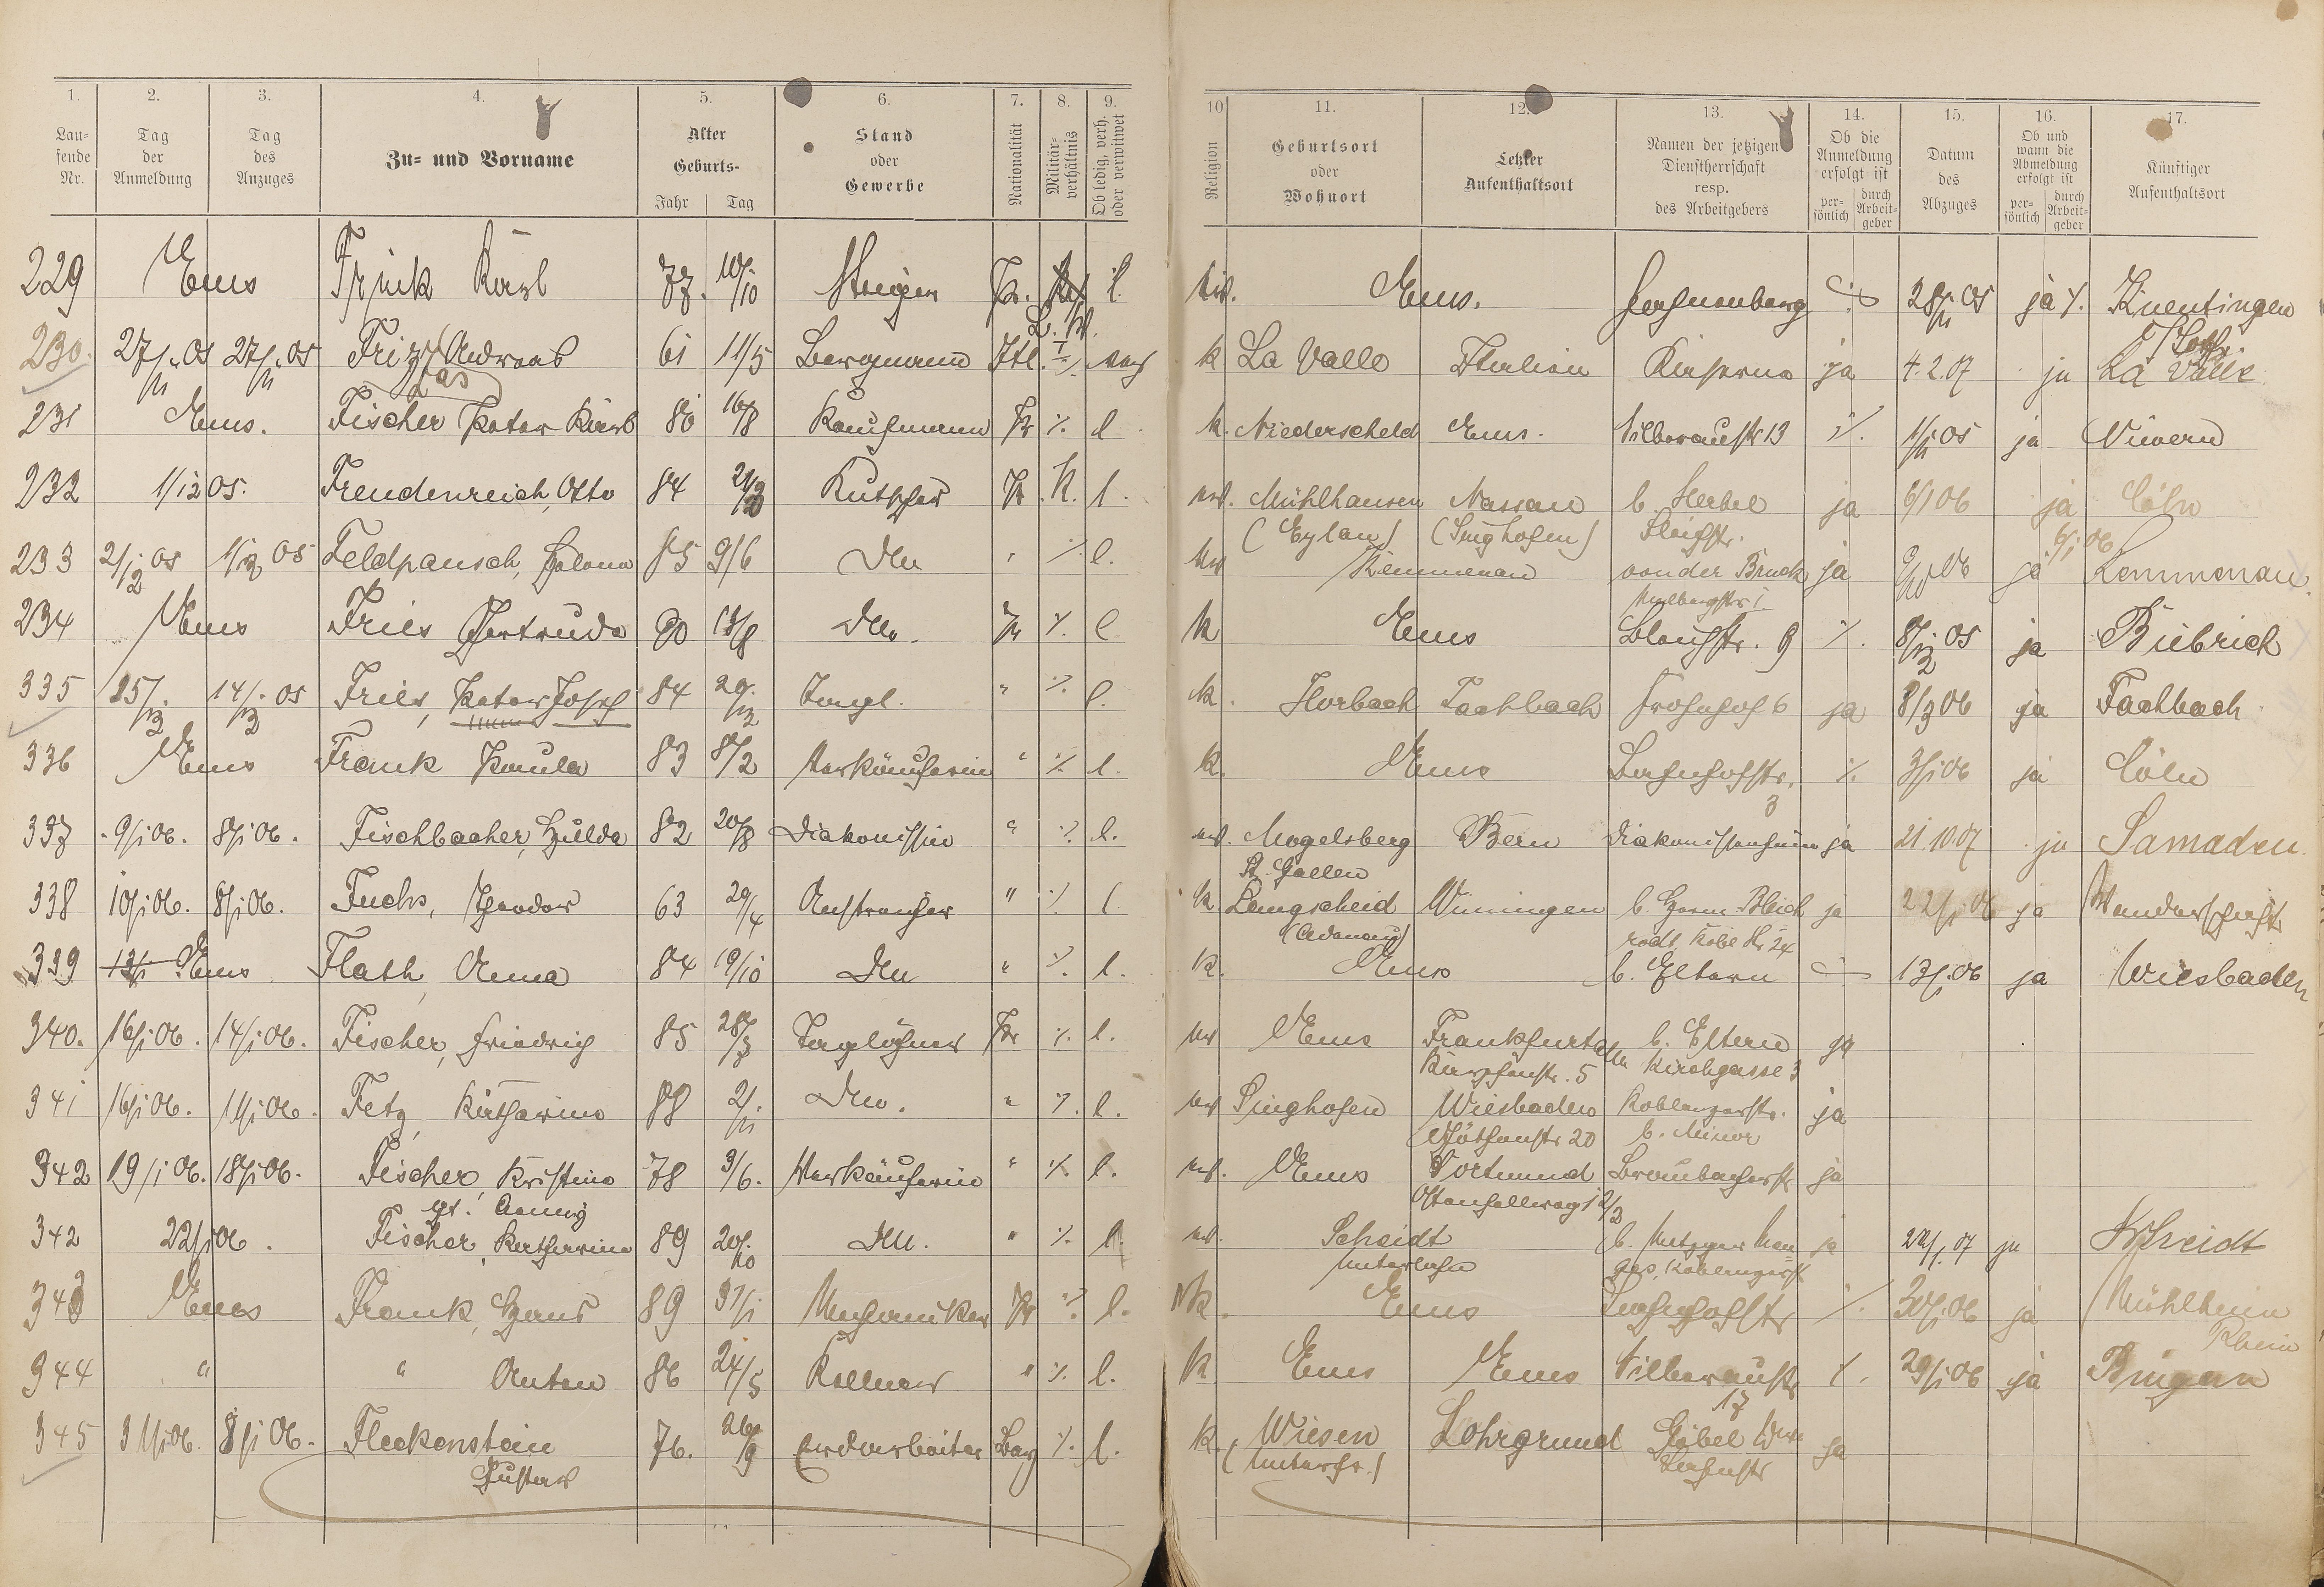 1. 2. 3. 4. 5. 6. 7. 8. 9.
Lau-fende Nr. Tag der Anmeldung Tag des Anzuges Zu- und Vorname Alter Geburts- Jahr Tag Stand oder Gewerbe Nationalität Militär-verhältnis Ob ledig, verh. oder verwitwet
10 11. 12. 13. 14. 15. 16. 17.
Religion Geburtsort oder Wohnort Letzter Aufenthaltsort Namen der jetzigen Dienstherrschaft resp. des Arbeitgebers Ob die Anmeldung erfolgt ist per-sönlich durch Arbeit-geber Datum des Abzuges Ob und wann die Abmeldung erfolgt ist per-sönlich durch Arbeit-geber Künftiger Aufenthaltsort
229 Ems Frink Karl 77. 10/10 Steiger Pr. l. Ems. 28/11 05 ja Kneutingen
230. 27/11 05 27/11 05 Friz Andreas 61 11/5 Bergmann Itl. k La Valle Italien Kaserne ja 4.2.07 ja La Valle
231 Ems. Fischer Peter Karl 80 16/8 Kaufmann Pr % l k. Niederscheld Ems. Silberaustr 13 %. 1/11 05 ja Nievern
232 1/12 05. Freudenreich, Otto 84 Kutscher Pr. l. Mühlhausen Nassau b. Herbel ja 6/1 06 ja Cöln
(Eylau) (Singhofen) Bleichstr. 6/1 06
233 2/12 05 1/12 05 Feldpausch, Helene 85 9/6 " % l. Kemmenau von der Bruck ja ja Kemmenau.
234 Ems Fries Gertrude 90 Pr %. l k Ems Bleichstr. 9 %. 8/12 05 ja Biebrich
335 15/12 14/12 05 Fries, Peter Josef 84 29/12 Tagl. " %. l. k. Horbach Fachbach Frohnhof 6 ja 8/3 06 ja Fachbach
336 Ems Frank Paula 83 8/2 Verkäuferin " %. l. k. Ems Bahnhofstr. 3 %. 3/1 06 ja Cöln
337 9/1 06. 8/1 06. Fischbacher, Hulda 82 20/8 Diakonissin " %. l. Mogelsberg Bern Diakonissenheim ja 21.10.07 ja Samaden
St. Gallen
338 10/1 06. 8/1 06. Fuchs, Theodor 63 29/4 Anstreicher " %. l k. Langscheid Winningen b. Herm. Bleich ja 22/1 06 ja Wanderschaft
(Adenau)
339 Ems Flath, Anna 84 19/10 " %. l. k. Ems b. Eltern 13/1 06 ja Wiesbaden
340. 16/1 06. 14/1 06. Fischer, Friedrich 85 28/3 Taglöhner Pr %. l. Ems Frankfurt a/m b. Eltern ja
Kirchgasse 3
341 16/1 06. 11/1 06. Fetz, Katharina 88 2/11 " %. l. Singhofen Wiesbaden Koblenzerstr. ja
Göthestr 20 b. Minor
342 19/1 06. 18/1 06. Fischer, Kristine 78 3/6. Verkäuferin " %. l. Ems Dortmund Braubacherstr ja
gt. Aenny Ostenhellweg
342 22/1 06. Fischer, Katharina 89 20/10 " %. l. Scheidt b. Metzger ja 22/1 07 ja Scheidt
Unterlahn
343 Ems Frank, Hans 89 31/1 Mechaniker Pr %. l. k. Ems Bahnhofstr %. 30/1 06 ja Mühlheim Rhein
344 " " Anton 86 24/5 Kellner " %. l. k Ems Ems Silberaustr 17 %. 29/1 06 ja Bingen
345 31/1 06. 8/1 06. Fleckenstein 76. 26/9 Erdarbeiter Bay %. l. k. Wiesen Lohrgrund Göbel Wwe ja
Gustav (Unterfr.)